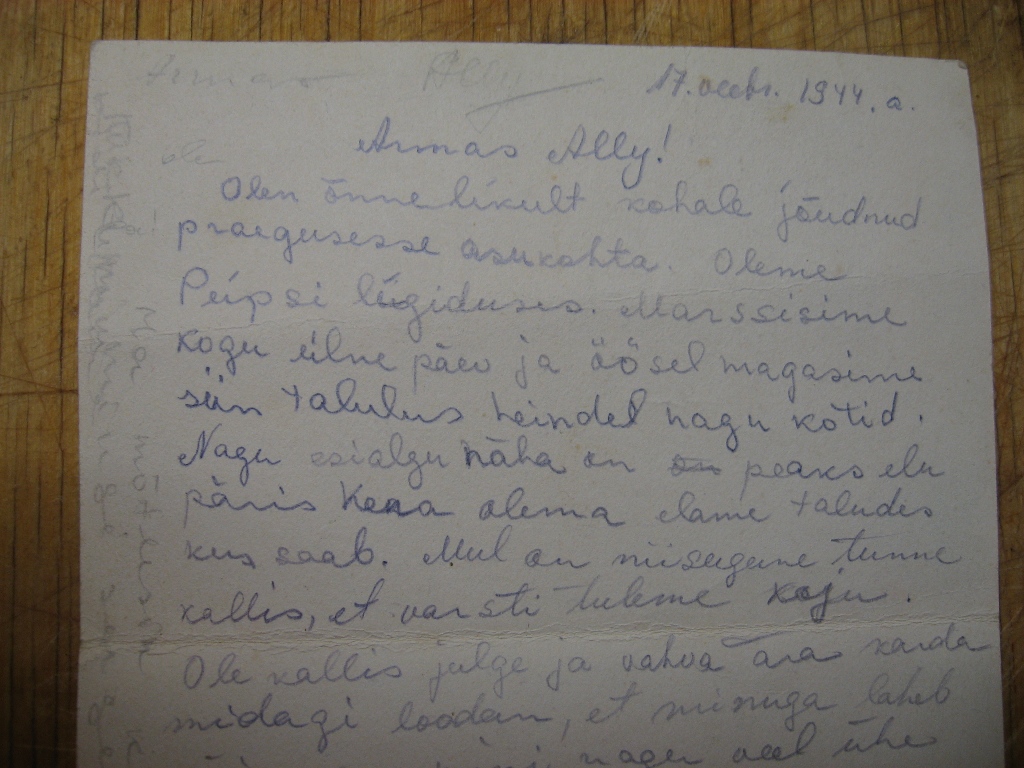 Armas Ally
17. veebr. 1944. a.
Armas Ally!
ole
Olen õnnelikult kohale jõudnud
praegusesse asukohta. Oleme
Peipsi ligiduses. Marssisime
kogu eilne päev ja öösel magasime
siin talulus heindel nagu kotid.
Nagu esialgu näha on peaks elu
päris kena olema elame taludes
kus saab. Mul on niisugune tunne
kallis, et varsti tuleme koju.
Ole kallis julge ja vahva ära karda
midagi loodan, et minuga läheb
nagu veel ühe
Ma mõtlesin